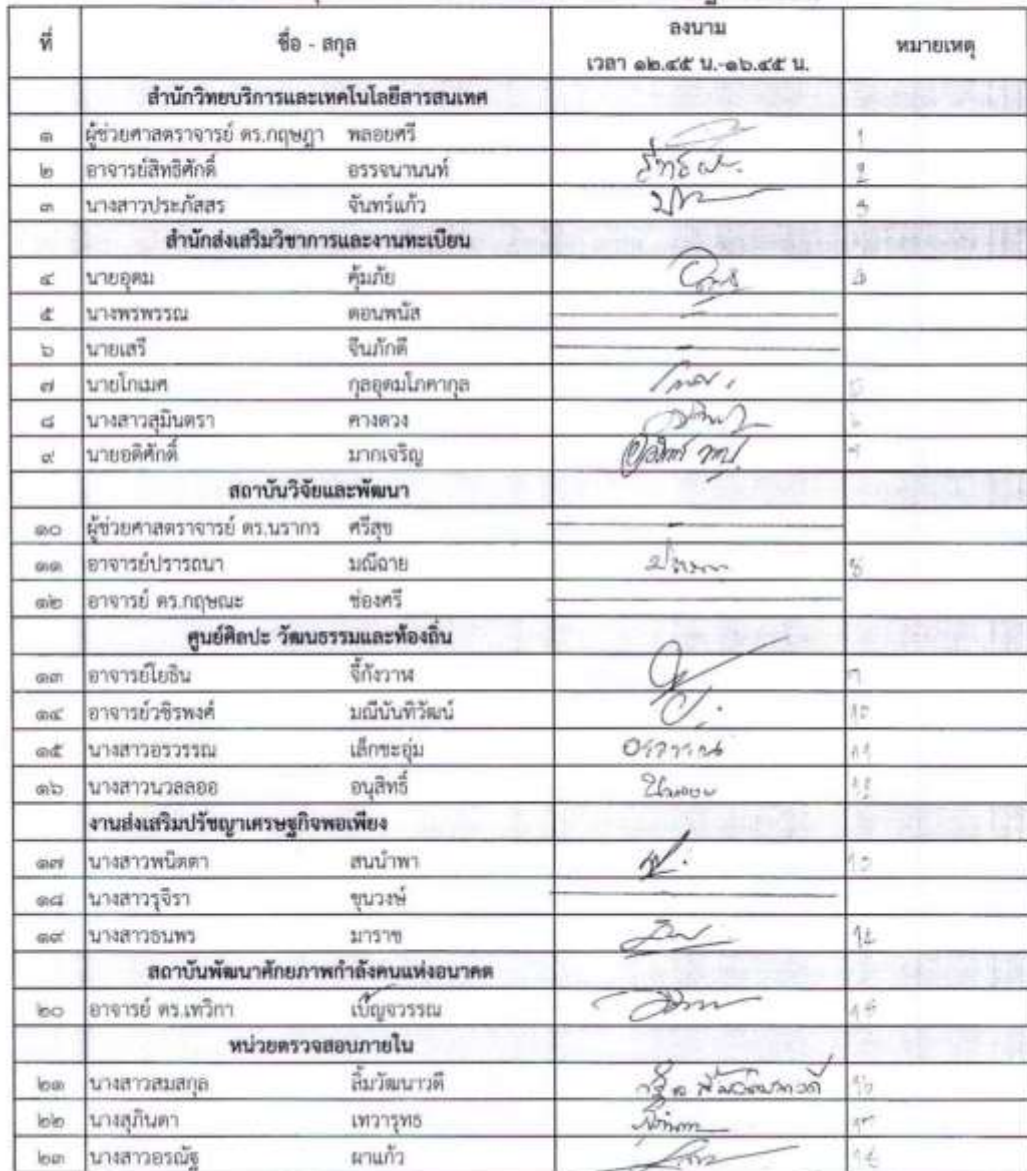 ที่ ชื่อ - สกุล ลงนาม หมายเหตุ
เวลา ๑๒.๔๕ น.-๑๖.๔๕ น.
สำนักวิทยบริการและเทคโนโลยีสารสนเทศ
๑ ผู้ช่วยศาสตราจารย์ ดร.กฤษฎา พลอยศรี 1
๒ อาจารย์สิทธิศักดิ์ อรรจนานนท์ 2
๓ นางสาวประภัสสร จันทร์แก้ว 3
สำนักส่งเสริมวิชาการและงานทะเบียน
๔ นายอุดม คุ้มภัย 4
๕ นางพรพรรณ ดอนพนัส
๖ นายเสรี จีนภักดี
๗ นายโกเมศ กุลอุดมโภคากุล 5
๘ นางสาวสุมินตรา คางดวง 6
๙ นายอดิศักดิ์ มากเจริญ 7
สถาบันวิจัยและพัฒนา
๑๐ ผู้ช่วยศาสตราจารย์ ดร.นรากร ศรีสุข
๑๑ อาจารย์ปรารถนา มณีฉาย 8
๑๒ อาจารย์ ดร.กฤษณะ ช่องศรี
ศูนย์ศิลปะ วัฒนธรรมและท้องถิ่น
๑๓ อาจารย์โยธิน จี้กังวาฬ
๑๔ อาจารย์วชิรพงศ์ มณีนันทิวัฒน์ 10
๑๕ นางสาวอรวรรณ เล็กชะอุ่ม อรวรรณ 11
๑๖ นางสาวนวลลออ อนุสิทธิ์ นวลลออ 12
งานส่งเสริมปรัชญาเศรษฐกิจพอเพียง
๑๗ นางสาวพนิตตา สนนำพา 13
๑๘ นางสาวรุจิรา ขุนวงษ์
๑๙ นางสาวธนพร มาราช 14
สถาบันพัฒนาศักยภาพกำลังคนแห่งอนาคต
๒๐ อาจารย์ ดร.เทวิกา เบ็ญจวรรณ 15
หน่วยตรวจสอบภายใน
๒๑ นางสาวสมสกุล ลิ้มวัฒนาวดี 16
๒๒ นางสุภินดา เทวารุทธ 17
๒๓ นางสาวอรณัฐ ผาแก้ว 18